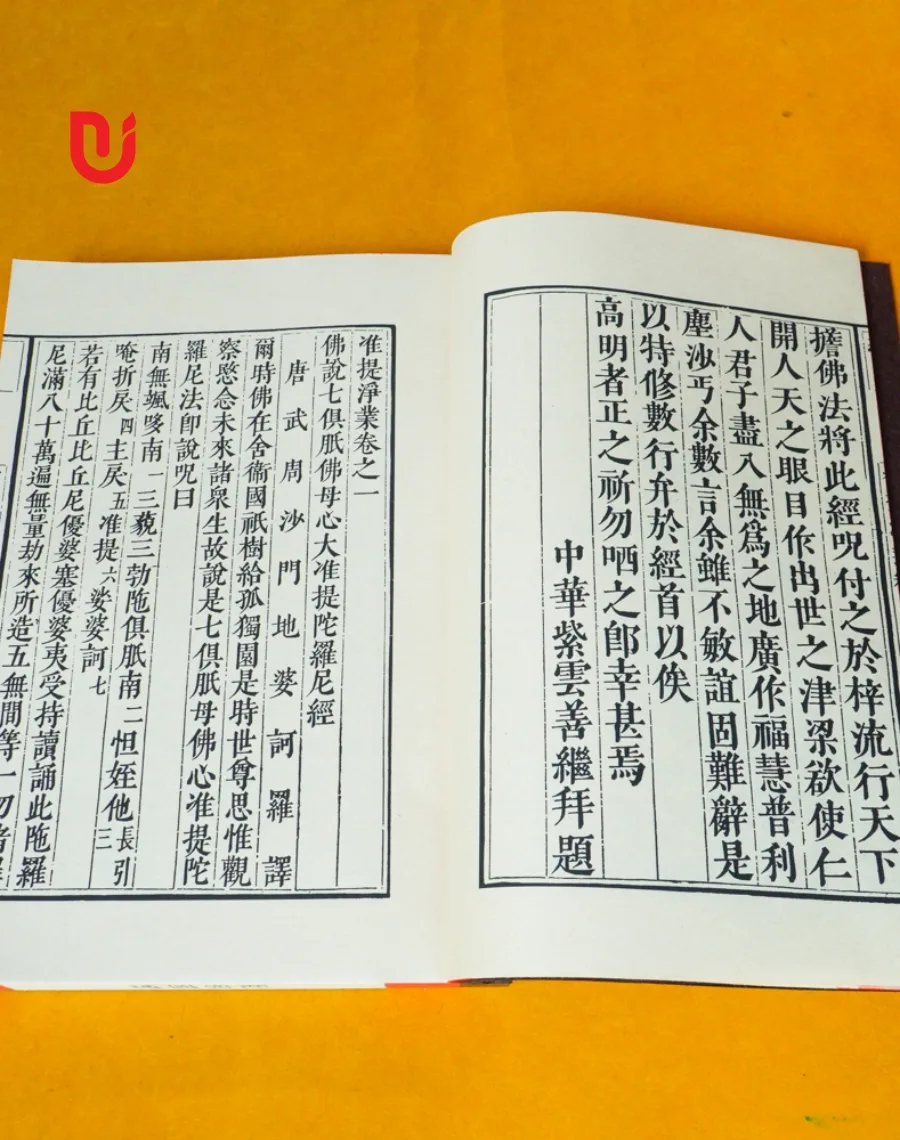 擔佛法將此經呪付之於梓流行天下
開人天之眼目作出世之津梁欲使仁
人君子盡入無爲之地廣作福慧普利
塵沙丐余數言余雖不敏誼固難辭是
以特修數行弁於經首以俟
高明者正之祈勿哂之卽幸甚焉
中華紫雲善繼拜題
准提淨業卷之一
佛說七俱胝佛母心大准提陀羅尼經
唐武周沙門地婆訶羅譯
爾時佛在舍衞國祇樹給孤獨園是時世尊思惟觀
察愍念未來諸衆生故說是七俱胝母佛心准提陀
羅尼法卽說呪曰
南無颯哆南一三藐三勃陁俱胝南二怛姪他長引三
唵折戾四主戾五准提六娑婆訶七
若有比丘比丘尼優婆塞優婆夷受持讀誦此陁羅
尼滿八十萬遍無量劫來所造五無間等一切諸罪